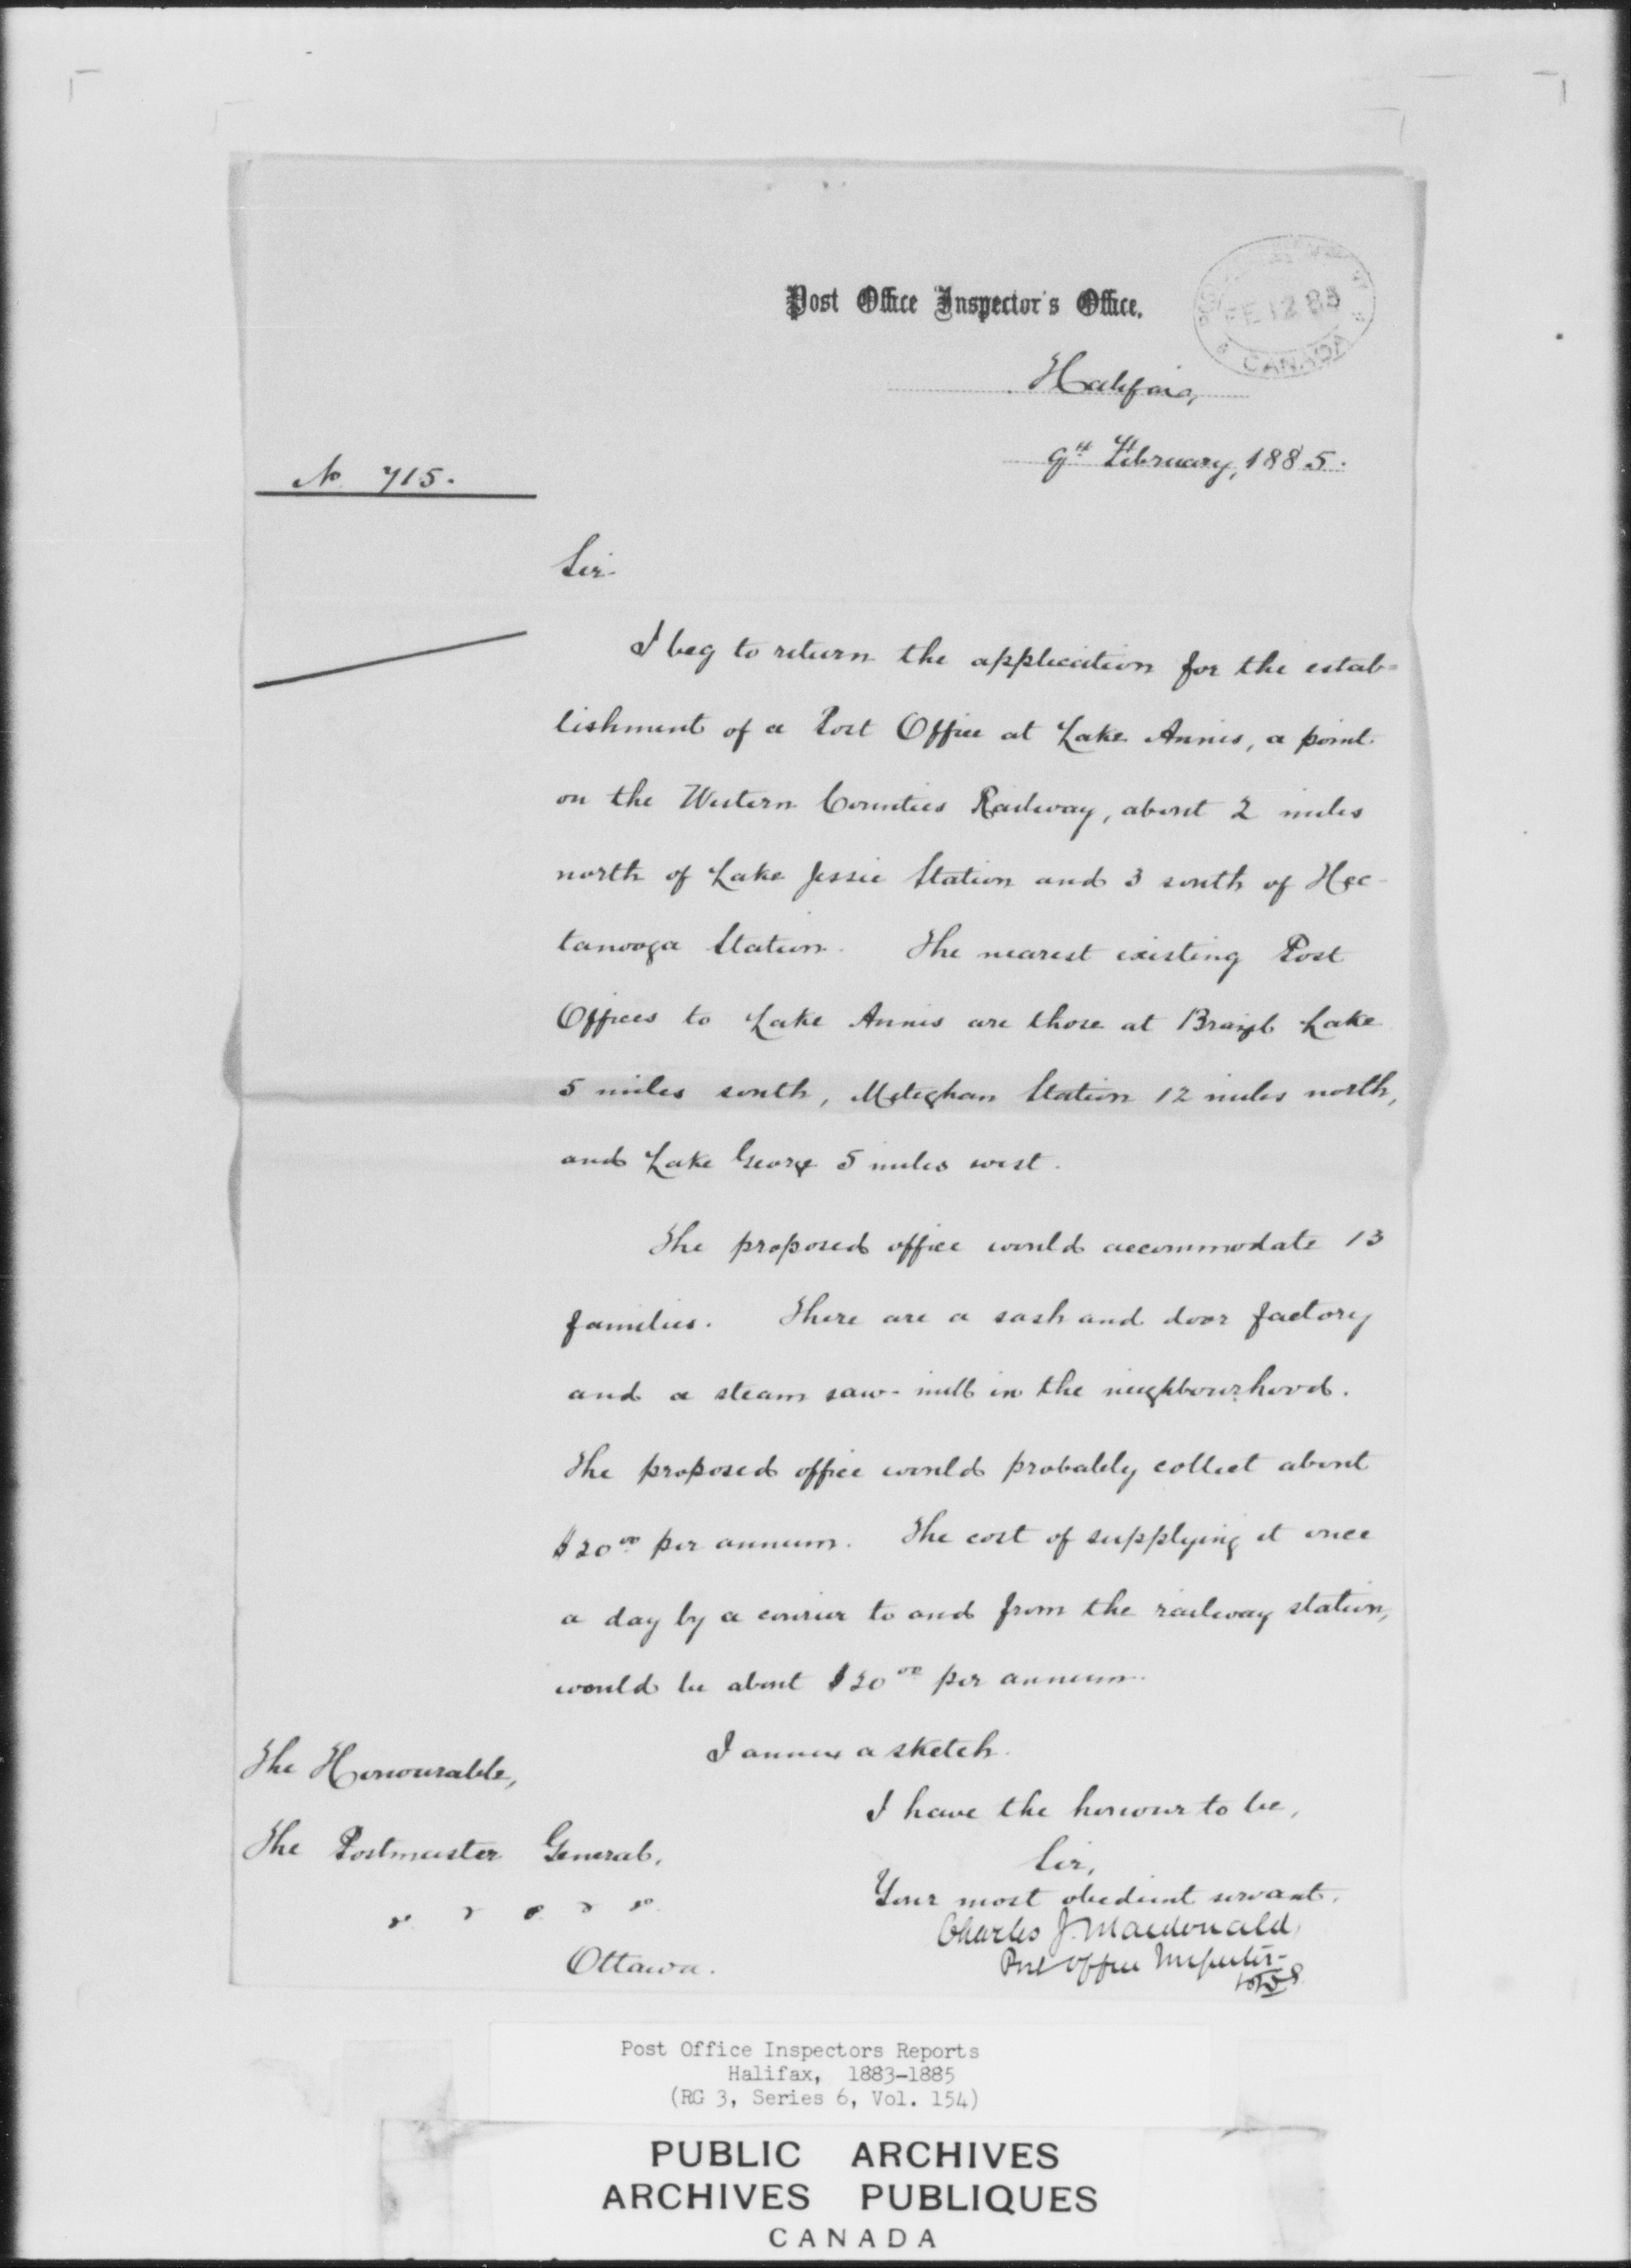 Post Office Inspector's Office.
FE 12 85
CANADA
Halifax,
9th February, 1885.
No 715.
Sir
I beg to return the application for the estab=
lishment of a Post Office at Lake Annis, a point
on the Western Counties Railway, about 2 miles
north of Lake Jessie Station and 3 south of Hec-
tanooga Station. The nearest existing Post
Offices to Lake Annis are those at Brazil Lake
5 miles south, Meteghan Station 12 miles north,
and Lake George 5 miles west.
The proposed office would accommodate 13
families. There are a sash and door factory
and a steam saw-mill in the neighbourhood.
The proposed office would probably collect about
$20.00 per annum. The cost of supplying it once
a day by a courier to and from the railway station,
would be about $20.00 per annum.
I annex a sketch.
I have the honour to be,
Sir,
Your most obedient servant,
Charles J. Macdonald,
Post Office Inspector
The Honourable,
The Postmaster General,
" " " " "
Ottawa.
Post Office Inspectors Reports
Halifax, 1883-1885
(RG 3, Series 6, Vol. 154)
PUBLIC ARCHIVES
ARCHIVES PUBLIQUES
CANADA